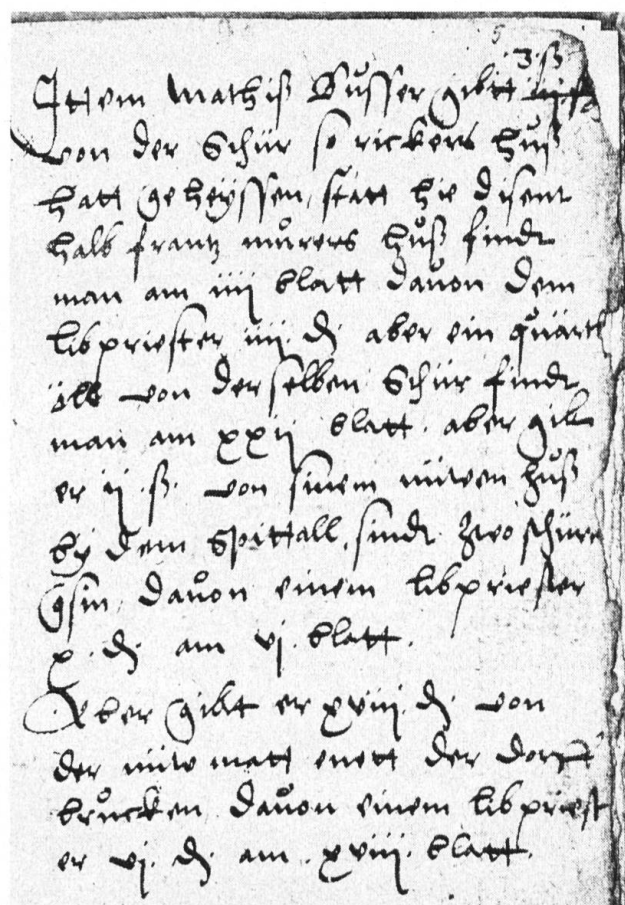 .3.ß
Ittem Mathiß Bůsser gibtt
von der Schür so rickers huß
hatt geheÿssen, statt hie disent
halb frantz můrers hůß findt
man am iiij blatt dauon dem
libpriester iiij. d. aber ein quärtt
öll von der selben Schür findt
man am xxij blatt. aber gibt
er ij. ß. von sinem nüwen hůß
bÿ dem Spittall, sindt zwo schüren
gsin, dauon einem libpriester
x. d. am vj. blatt.
Aber gibtt er xviij. d. von
der nüw matt enett der dorff
brucken, dauon einem libpriest
er vj. d. am. xviij. blatt.